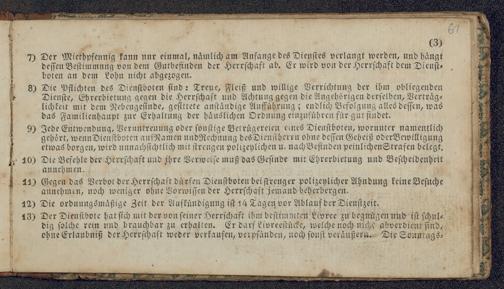 61
(3)
7) Der Miethpfennig kann nur einmal, nämlich am Anfange des Dienstes verlangt werden, und hängt
dessen Bestimmung von dem Gutbefinden der Herrschaft ab. Er wird von der Herrschaft dem Dienst-
boten an dem Lohn nicht abgezogen.
8) Die Pflichten des Dienstboten sind: Treue, Fleiß und willige Verrichtung der ihm obliegenden
Dienste, Ehrerbietung gegen die Herrschaft und Achtung gegen die Angehörigen derselben, Verträg-
lichkeit mit dem Nebengesinde, gesittete anständige Aufführung; endlich Befolgung alles dessen, was
das Familienhaupt zur Erhaltung der häuslichen Ordnung einzuführen für gut findet.
9) Jede Entwendung, Veruntreuung oder sonstige Betrügereien eines Dienstboten, worunter namentlich
gehört, wenn Dienstboten auf Namen und Rechnung des Dienstherrn ohne dessen Geheiß oder Bewilligung
etwas borgen, wird unnachsichtlich mit strengen polizeylichen u. nach Befinden peinlichen Strafen belegt.
10) Die Befehle der Herrschaft und ihre Verweise muß das Gesinde mit Ehrerbietung und Bescheidenheit
annehmen.
11) Gegen das Verbot der Herrschaft dürfen Dienstboten bei strenger polizeylicher Ahndung keine Besuche
annehmen, noch weniger ohne Vorwissen der Herrschaft jemand beherbergen.
12) Die ordnungsmäßige Zeit der Aufkündigung ist 14 Tage vor Ablauf der Dienstzeit.
13) Der Dienstbote hat sich mit der von seiner Herrschaft ihm bestimmten Livree zu begnügen und ist schul-
dig solche rein und brauchbar zu erhalten. Er darf Livreestücke, welche noch nicht abverdient sind,
ohne Erlaubniß der Herrschaft weder verkaufen, verpfänden, noch sonst veräußern. Die Sonntags-